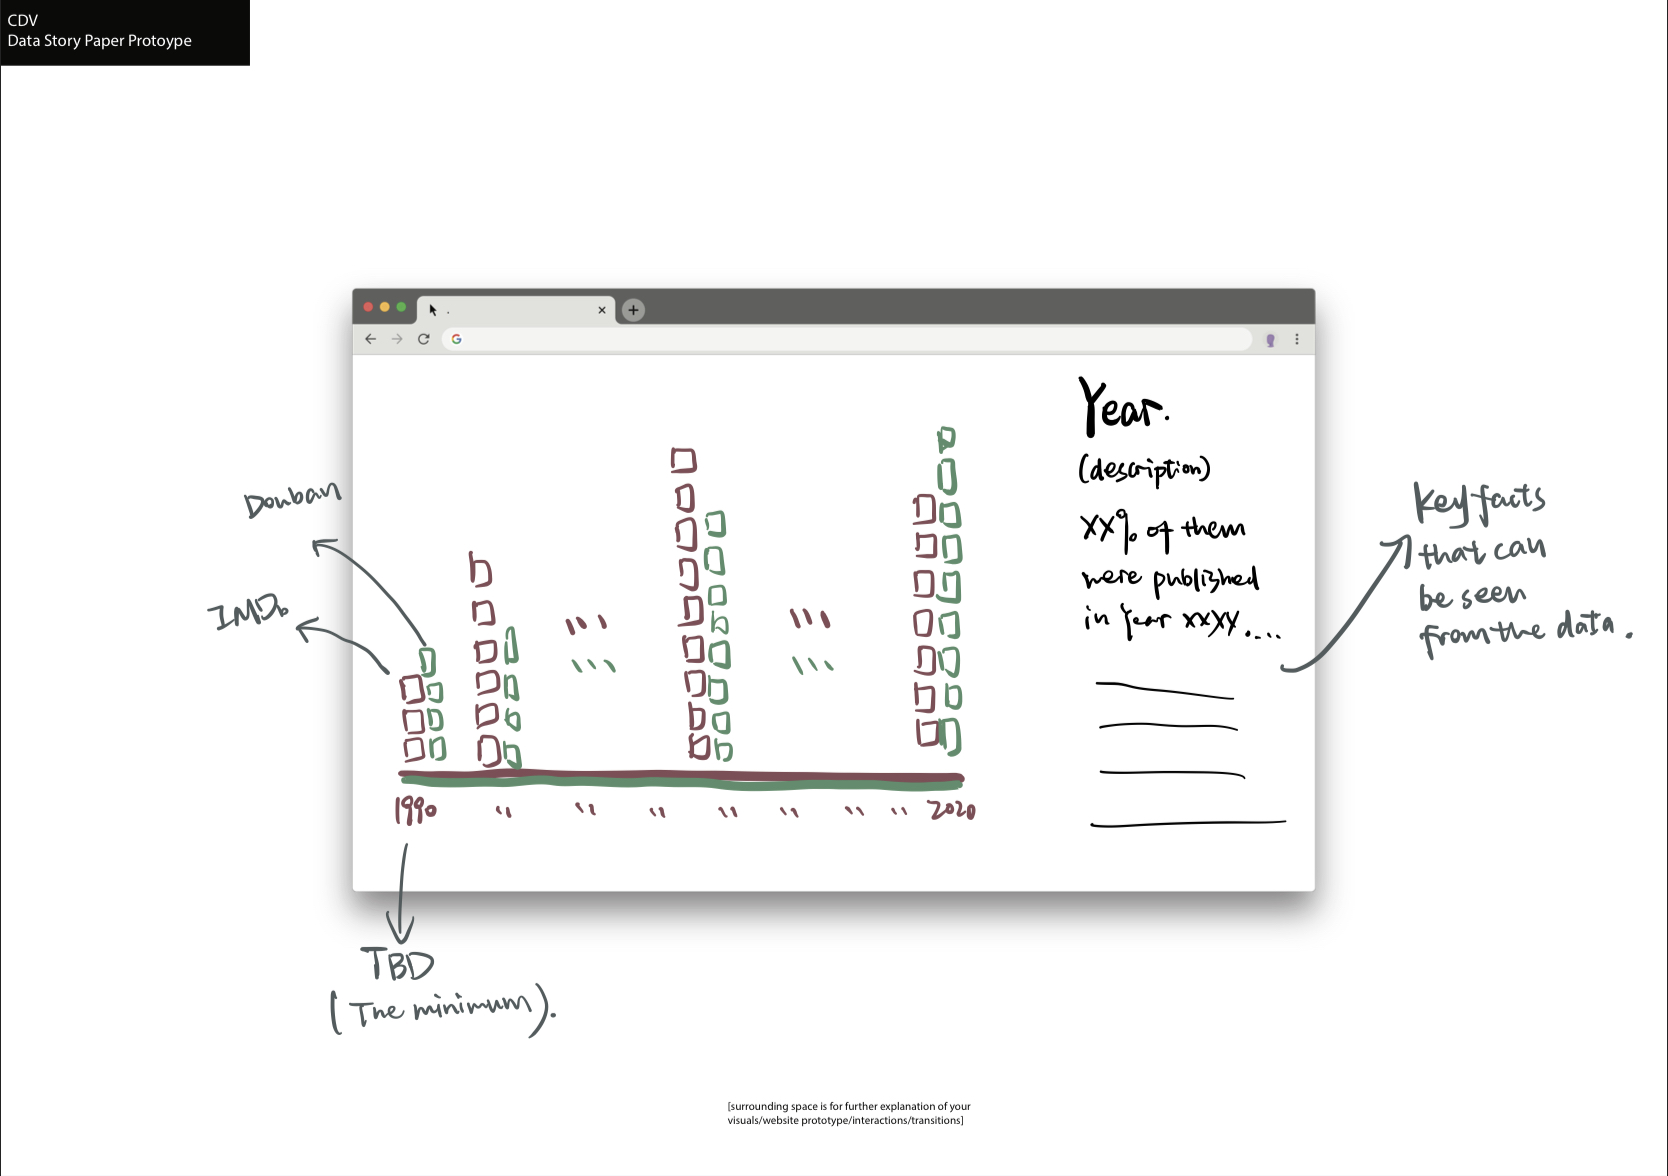 CDV
Data Story Paper Protoype
Year.
(description)
XX% of them
were published
in Year XXXX....
Douban
IMDb
Key facts
that can
be seen
from the data.
1990
2020
TBD
(The minimum).
[surrounding space is for further explanation of your
visuals/website prototype/interactions/transitions]